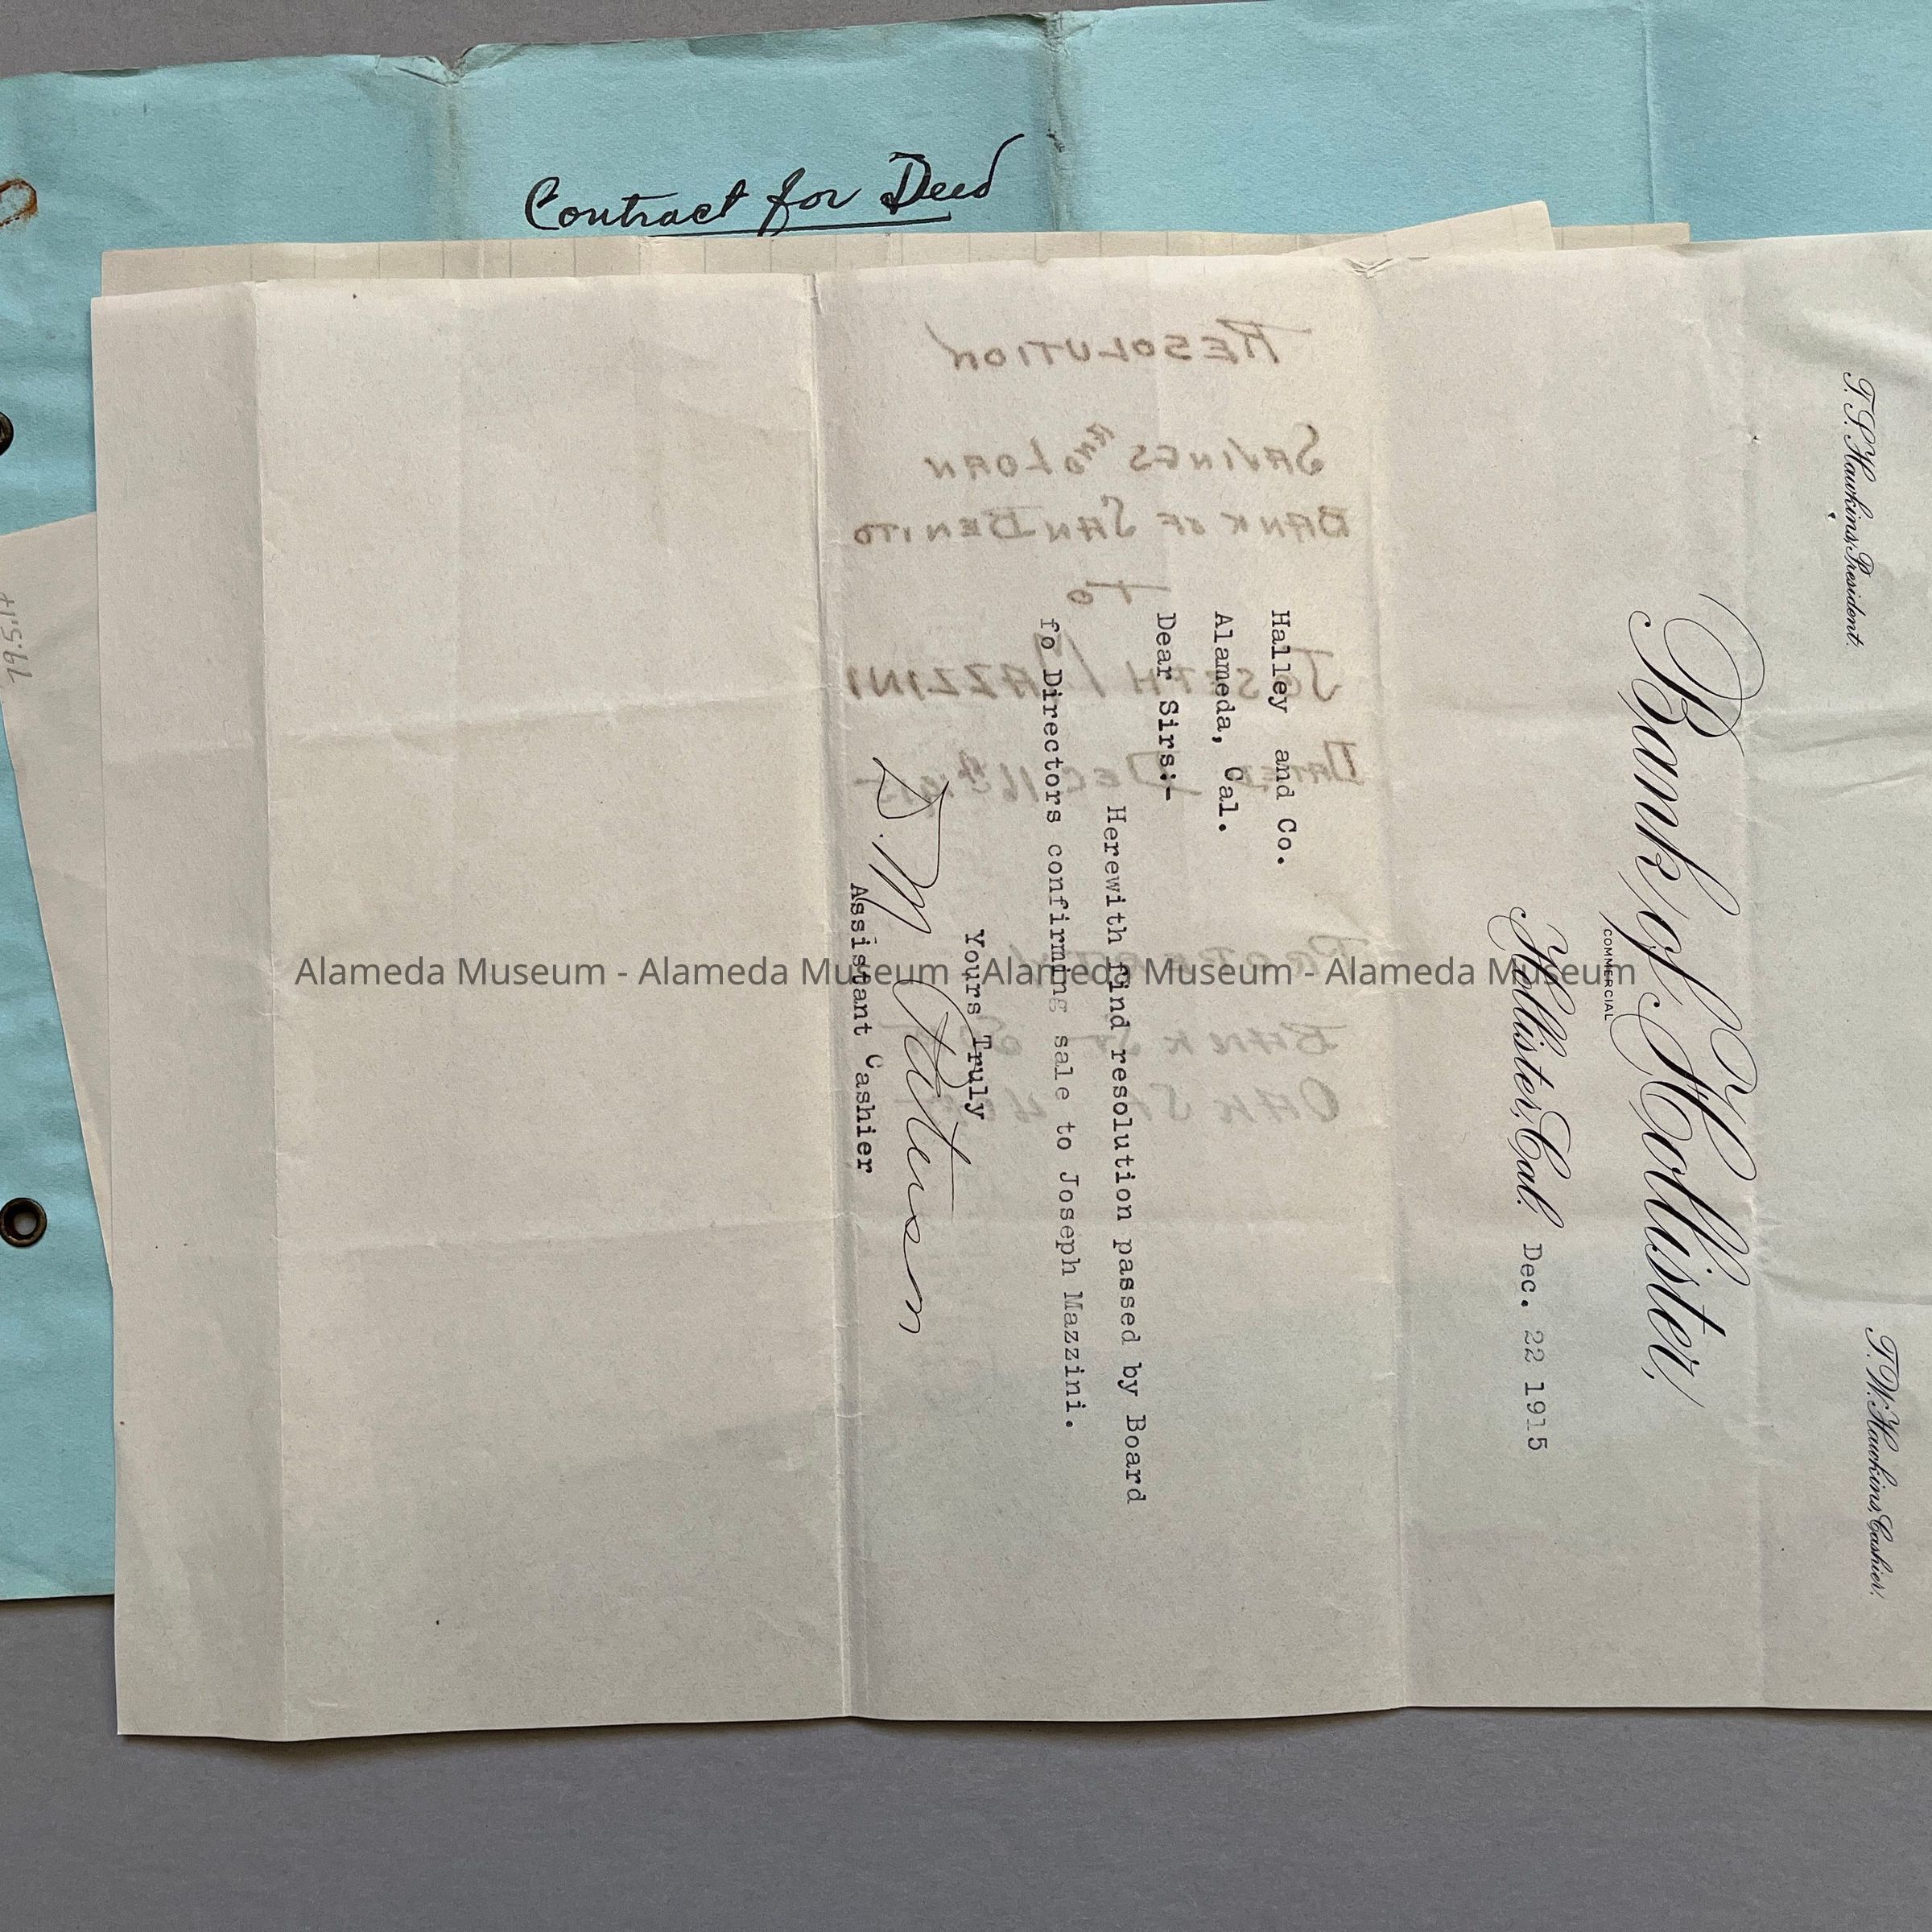 Contract for Deed
T. S. Hawkins, President.
T. W. Hawkins, Cashier.
Bank of Hollister,
COMMERCIAL
Hollister, Cal. Dec. 22 1915
Halley and Co.
Alameda, Cal.
Dear Sirs:-
Herewith find resolution passed by Board
fo Directors confirming sale to Joseph Mazzini.
Yours Truly
D. M. Paterson
Assistant Cashier
RESOLUTION
SAVINGS AND LOAN
BANK OF SAN BENITO
TO
JOSEPH MAZZINI
DATED DEC 16th 1915
Alameda Museum - Alameda Museum - Alameda Museum - Alameda Museum